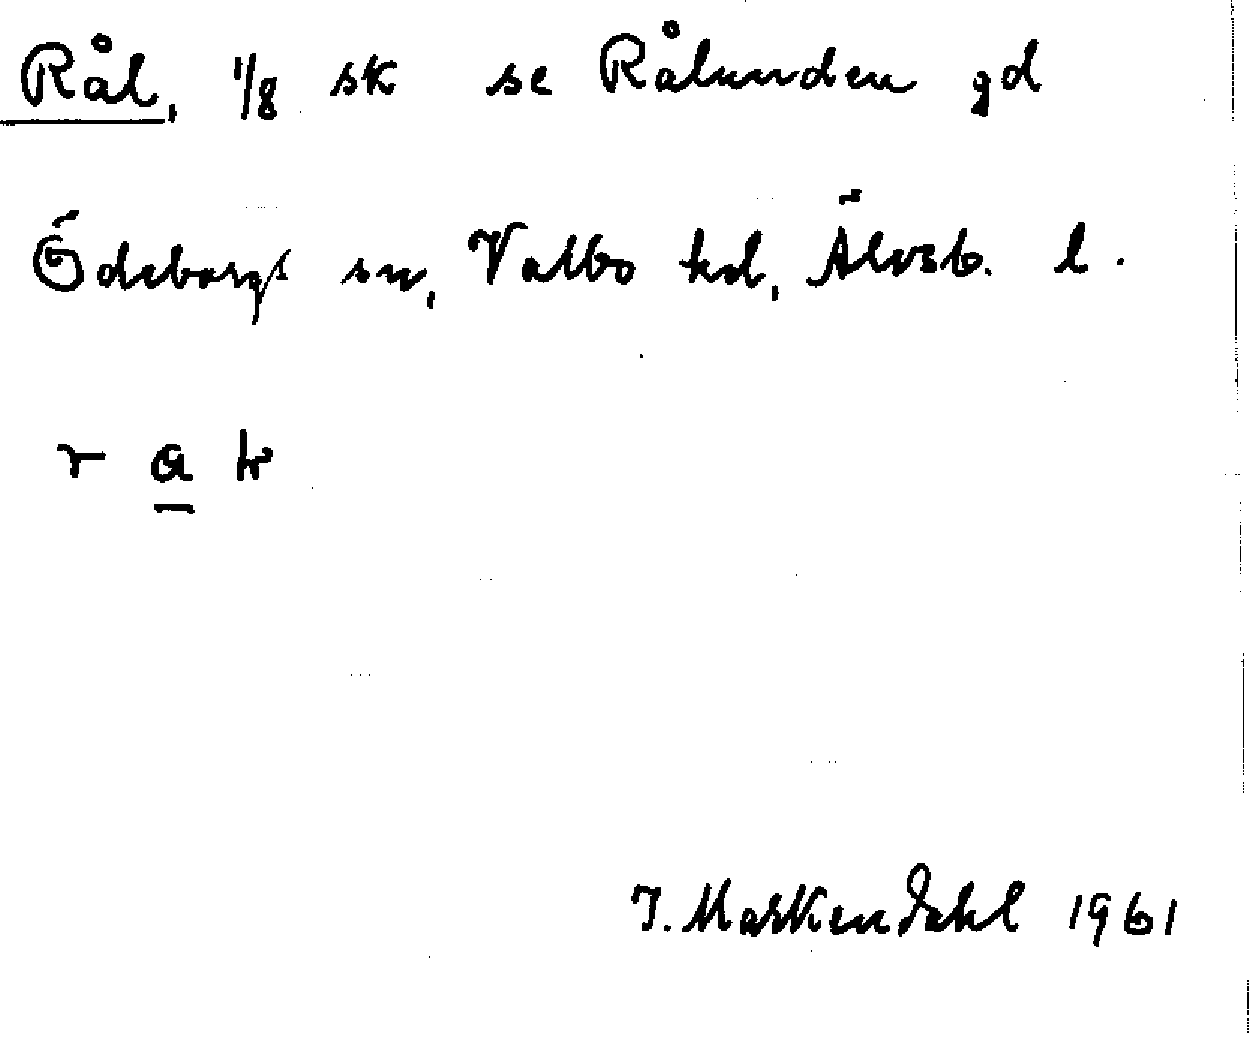 Rål, 1/8 sk se Rålunden gd
Ödeborgs sn, Valbo hd, Älvsb. l.
r a k
I. Markendahl 1961